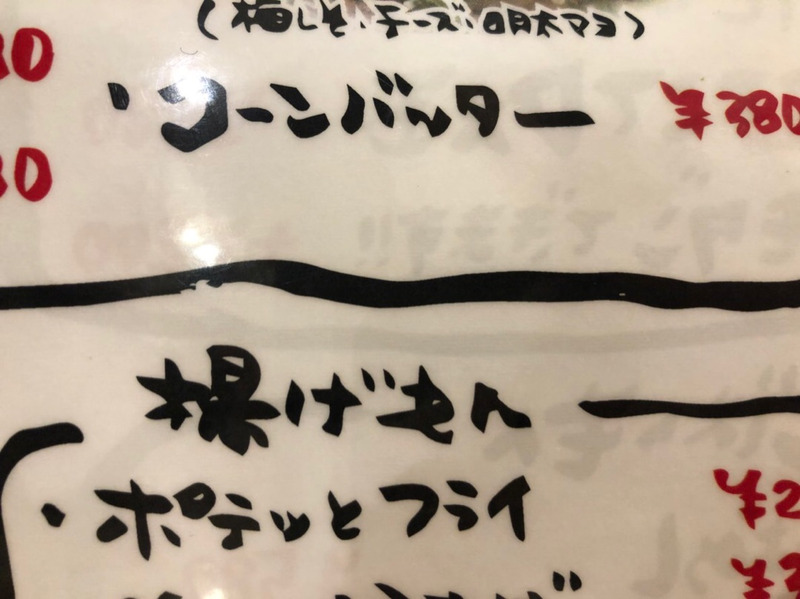 (梅しそ・チーズ・明太マヨ)
・コーンバター ¥380
揚げもん
・ポテッとフライ